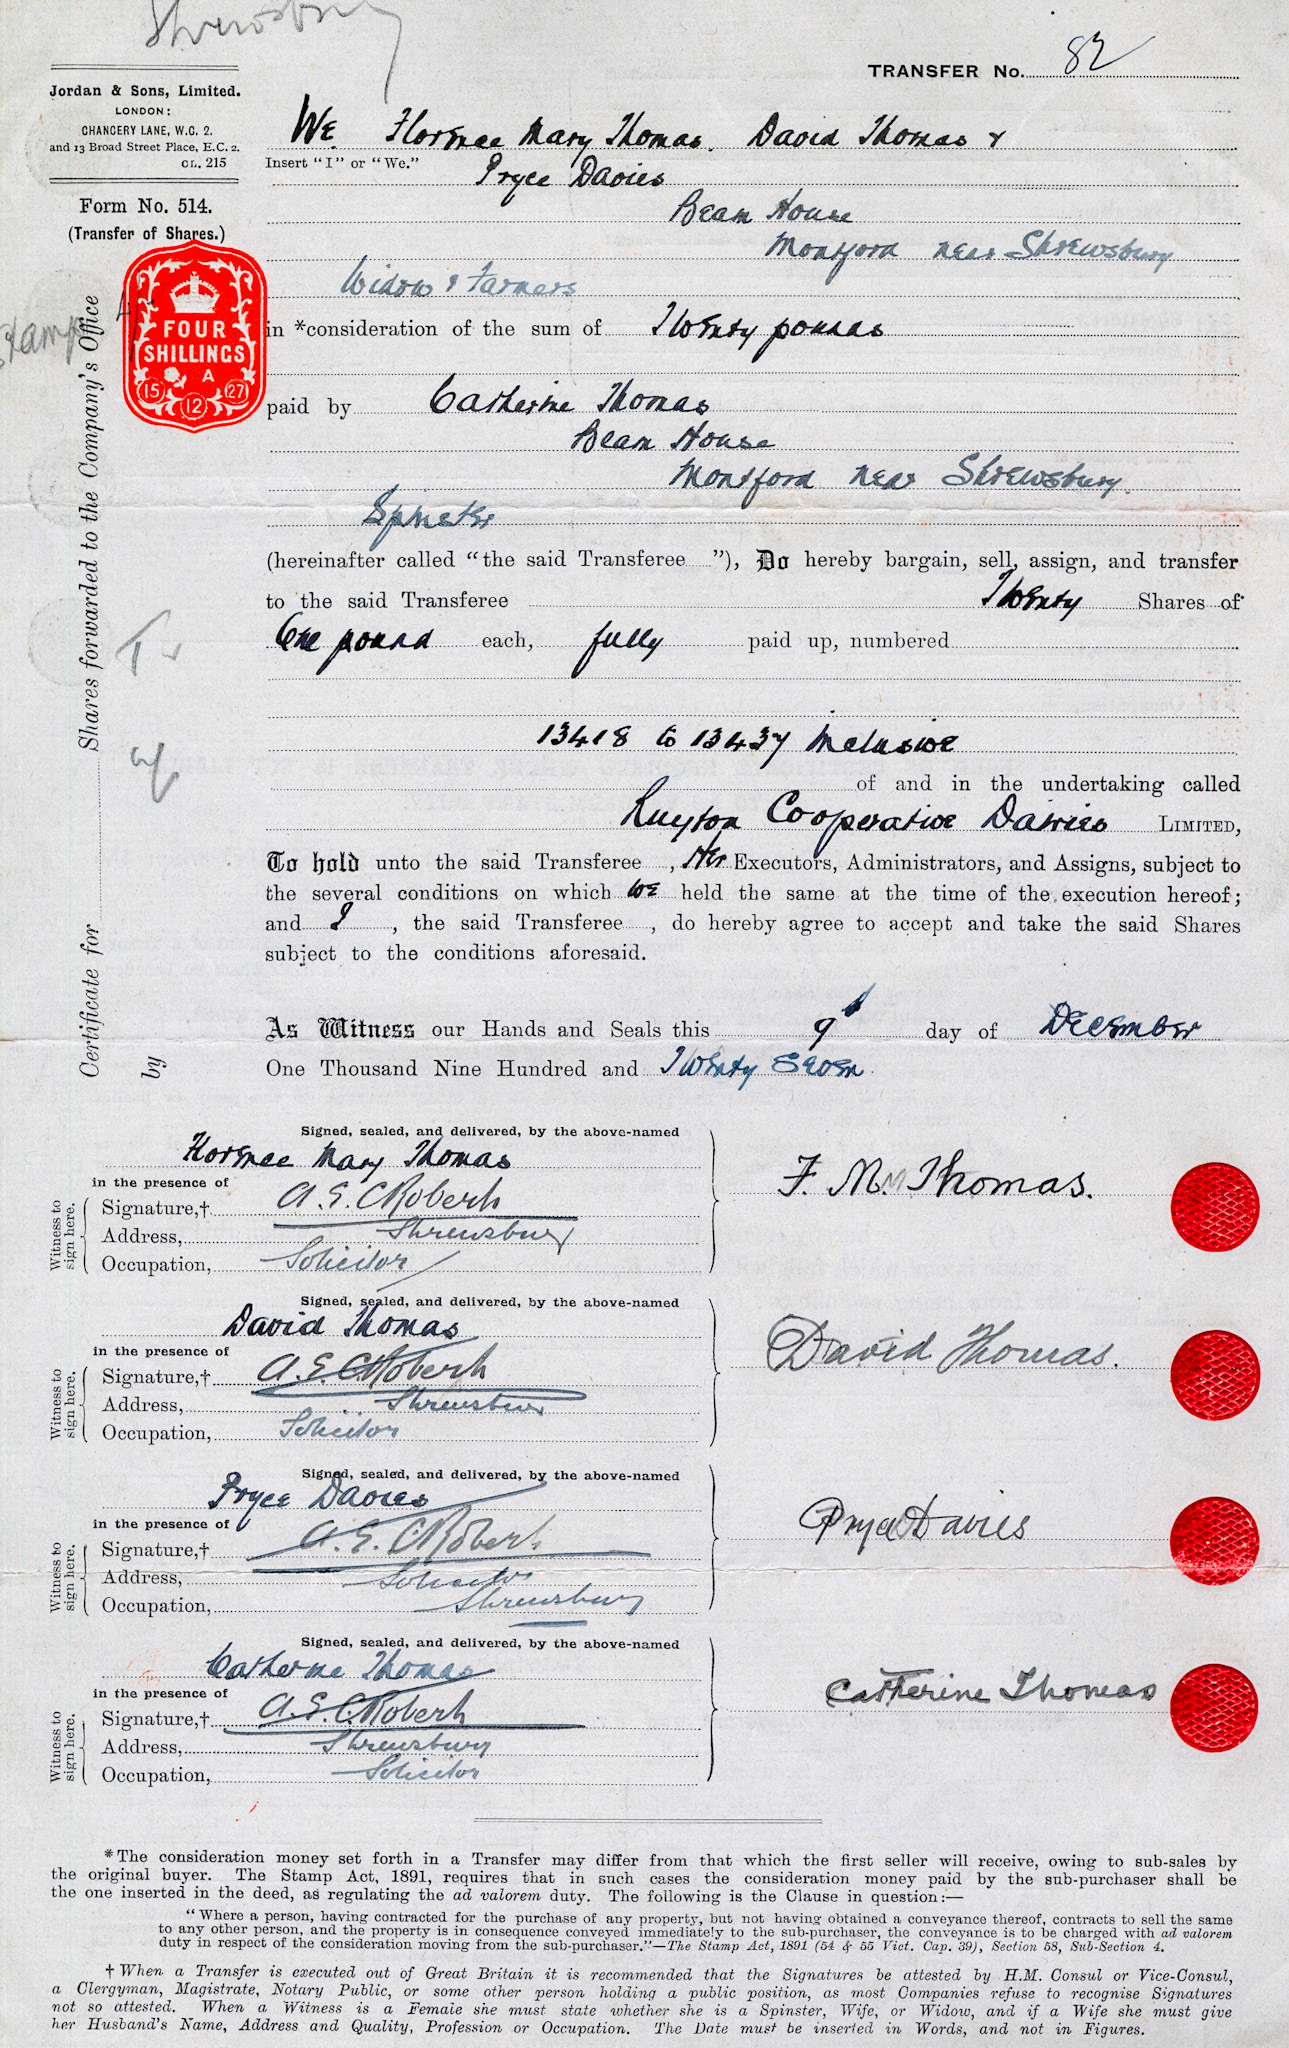 Shrewsbury
TRANSFER No. 82
Jordan & Sons, Limited.
LONDON:
CHANCERY LANE, W.C. 2.
and 13 Broad Street Place, E.C. 2.
CL. 215
Form No. 514.
(Transfer of Shares.)
We Florence Mary Thomas. David Thomas &
Insert "I" or "We."
Pryce Davies
Beam House
Montford near Shrewsbury
Widow & Farmers
FOUR
SHILLINGS
A
15 12 27
Stamp 4/-
in *consideration of the sum of Twenty pounds
paid by Catherine Thomas
Beam House
Montford near Shrewsbury.
Spinster
(hereinafter called "the said Transferee "), Do hereby bargain, sell, assign, and transfer
to the said Transferee Twenty Shares of
One pound each, fully paid up, numbered
13418 to 13437 inclusive
of and in the undertaking called
Ruyton Cooperative Dairies LIMITED,
To hold unto the said Transferee , Her Executors, Administrators, and Assigns, subject to
the several conditions on which we held the same at the time of the execution hereof;
and I , the said Transferee , do hereby agree to accept and take the said Shares
subject to the conditions aforesaid.
As Witness our Hands and Seals this 9th day of December
One Thousand Nine Hundred and Twenty Seven
Certificate for Shares forwarded to the Company's Office
by
Signed, sealed, and delivered, by the above-named
Florence Mary Thomas
in the presence of
Witness to sign here.
Signature,† A. E. C Roberts
Address, Shrewsbury
Occupation, Solicitor
F. M. Thomas.
Signed, sealed, and delivered, by the above-named
David Thomas
in the presence of
Witness to sign here.
Signature,† A. E. C Roberts
Address, Shrewsbury
Occupation, Solicitor
David Thomas.
Signed, sealed, and delivered, by the above-named
Pryce Davies
in the presence of
Witness to sign here.
Signature,† A. E. C Roberts
Address, Solicitor
Occupation, Shrewsbury
Pryce Davies
Signed, sealed, and delivered, by the above-named
Catherine Thomas
in the presence of
Witness to sign here.
Signature,† A. E. C. Roberts
Address, Shrewsbury
Occupation, Solicitor
Catherine Thomas
*The consideration money set forth in a Transfer may differ from that which the first seller will receive, owing to sub-sales by
the original buyer. The Stamp Act, 1891, requires that in such cases the consideration money paid by the sub-purchaser shall be
the one inserted in the deed, as regulating the ad valorem duty. The following is the Clause in question:—
"Where a person, having contracted for the purchase of any property, but not having obtained a conveyance thereof, contracts to sell the same
to any other person, and the property is in consequence conveyed immediately to the sub-purchaser, the conveyance is to be charged with ad valorem
duty in respect of the consideration moving from the sub-purchaser."—The Stamp Act, 1891 (54 & 55 Vict. Cap. 39), Section 58, Sub-Section 4.
† When a Transfer is executed out of Great Britain it is recommended that the Signatures be attested by H.M. Consul or Vice-Consul,
a Clergyman, Magistrate, Notary Public, or some other person holding a public position, as most Companies refuse to recognise Signatures
not so attested. When a Witness is a Female she must state whether she is a Spinster, Wife, or Widow, and if a Wife she must give
her Husband's Name, Address and Quality, Profession or Occupation. The Date must be inserted in Words, and not in Figures.